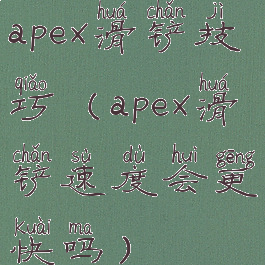 huá chǎn jì
apex滑铲技
qiǎo huá
巧(apex滑
chǎn sù dù huì gēng
铲速度会更
kuài ma
快吗,)